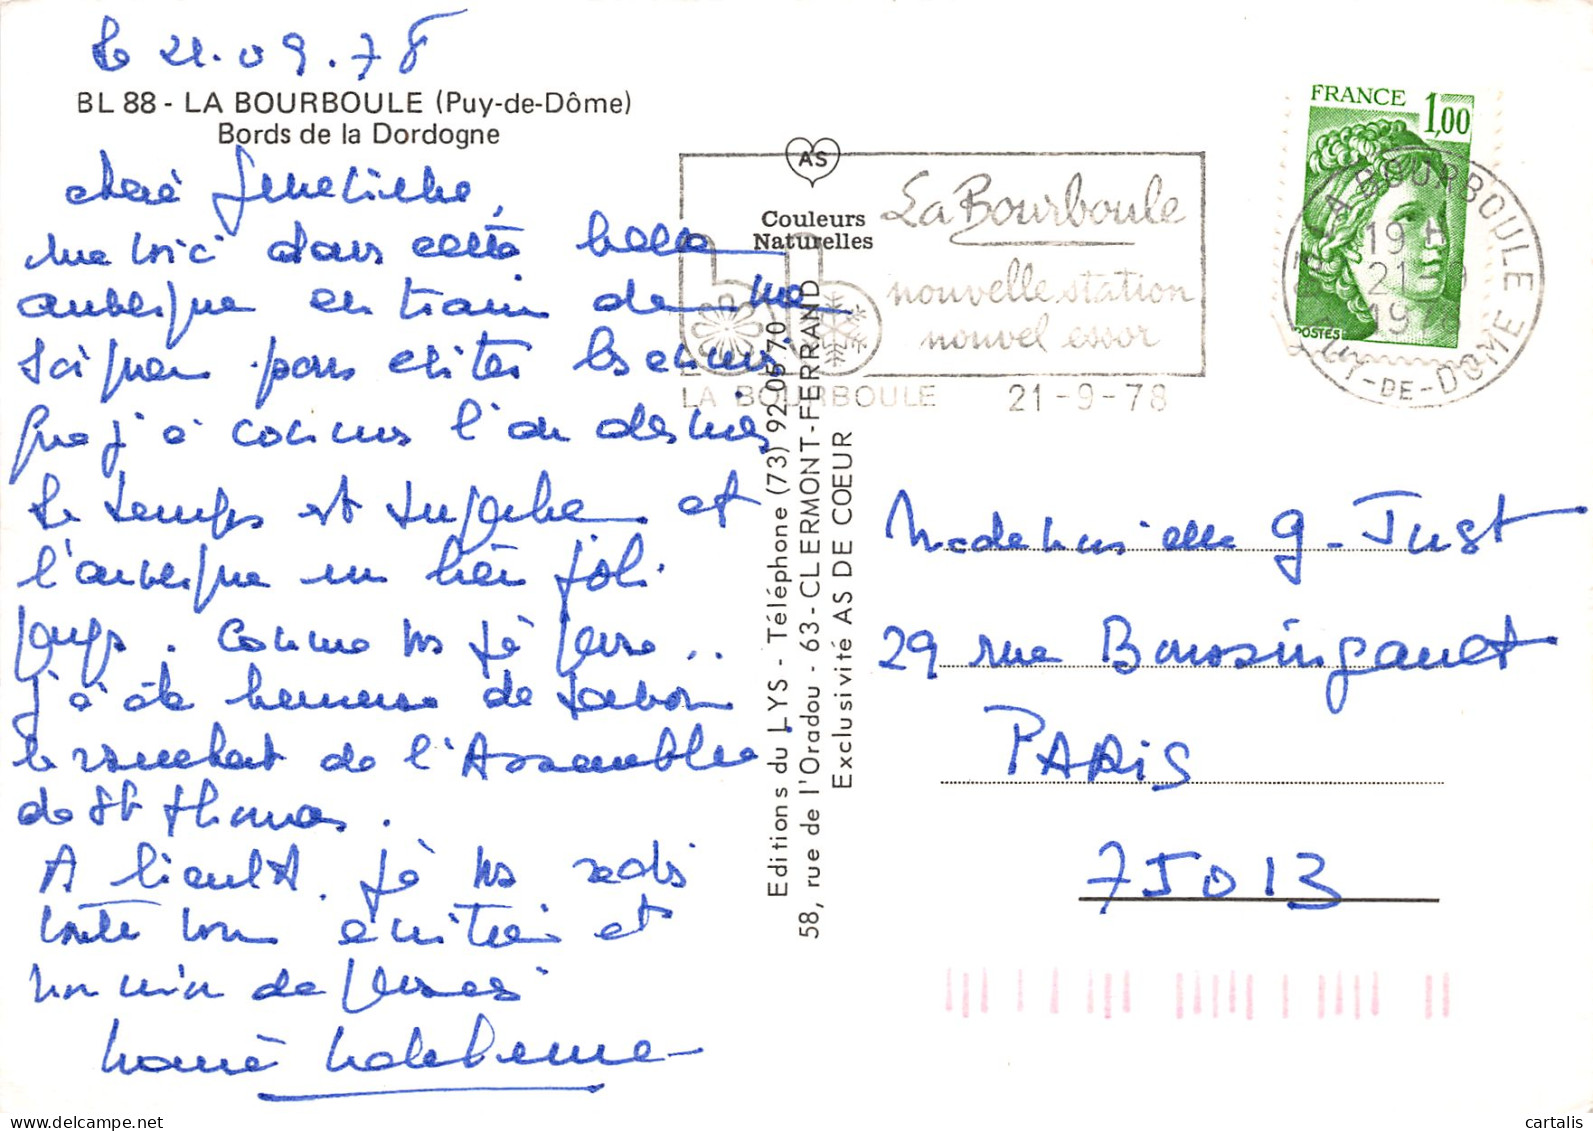 Le 21.09.78
BL 88 - LA BOURBOULE (Puy-de-Dôme)
Bords de la Dordogne
chère Geneviève,
me voici dans cette belle
auberge en train de me
soigner pour éviter les ennuis
que j'ai connus l'an dernier
Le temps est superbe et
l'auberge un bien joli
. Comme vs je pense ..
j'ai été heureuse de savoir
le de l'Assemblée
de St Thomas.
A bientôt. je vs redis
toute mon amitié et
mon union de pensées
Marie Madeleine
AS
Couleurs
Naturelles
La Bourboule
nouvelle station
nouvel essor
LA BOURBOULE 21-9-78
Editions du LYS - Téléphone (73) 92.05.70
58, rue de l'Oradou - 63 - CLERMONT-FERRAND
Exclusivité AS DE COEUR
FRANCE 1,00
POSTES
LA BOURBOULE
19 H
21 - 9
1978
PUY-DE-DOME
Mademoiselle G. Just
29 rue Boussingault
PARIS
75013
cartalis sur Delcampe.net